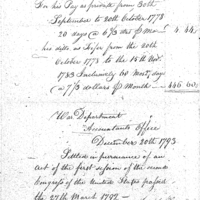 For his Pay as private from 30th
September to 20th October 1778
20 days @ 6 2/3 drs ⅌ Mon. $ 4.44
his ditto as Fifer from the 20th
October 1778 to the 15th Novr.
1783 Inclusively 60 Mon. days
@ 7 1/3 dollars ⅌ Month 446.60
War Department
Accountants Office
December 20th 1793.
Settled in pursuance of an
Act of the first session of the second
Congress of the United States passed
the 27th March 1792